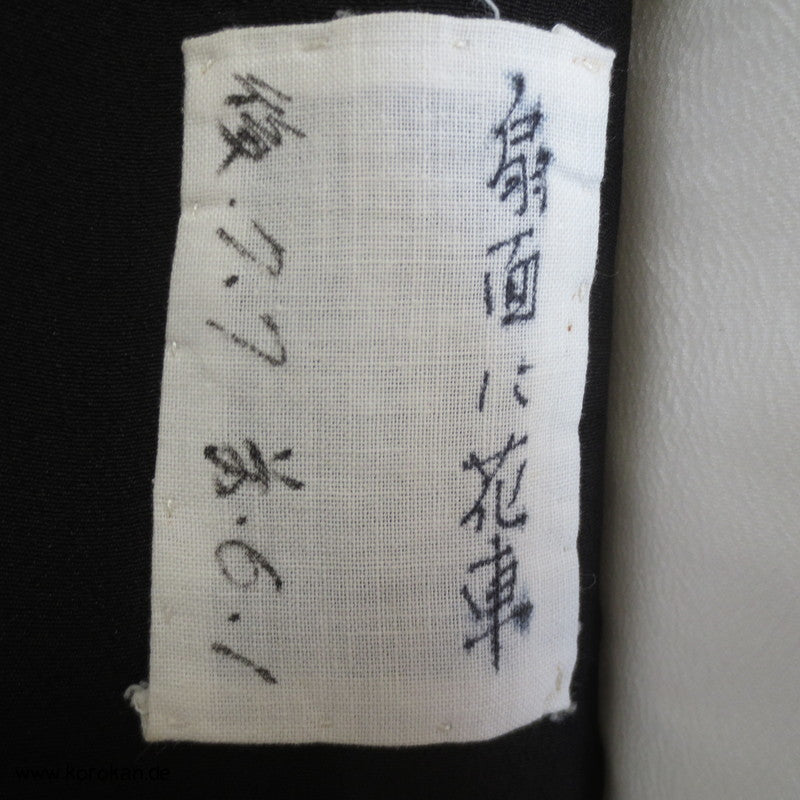 扇面に花車
後.7.7 前.6.1
www.korokan.de